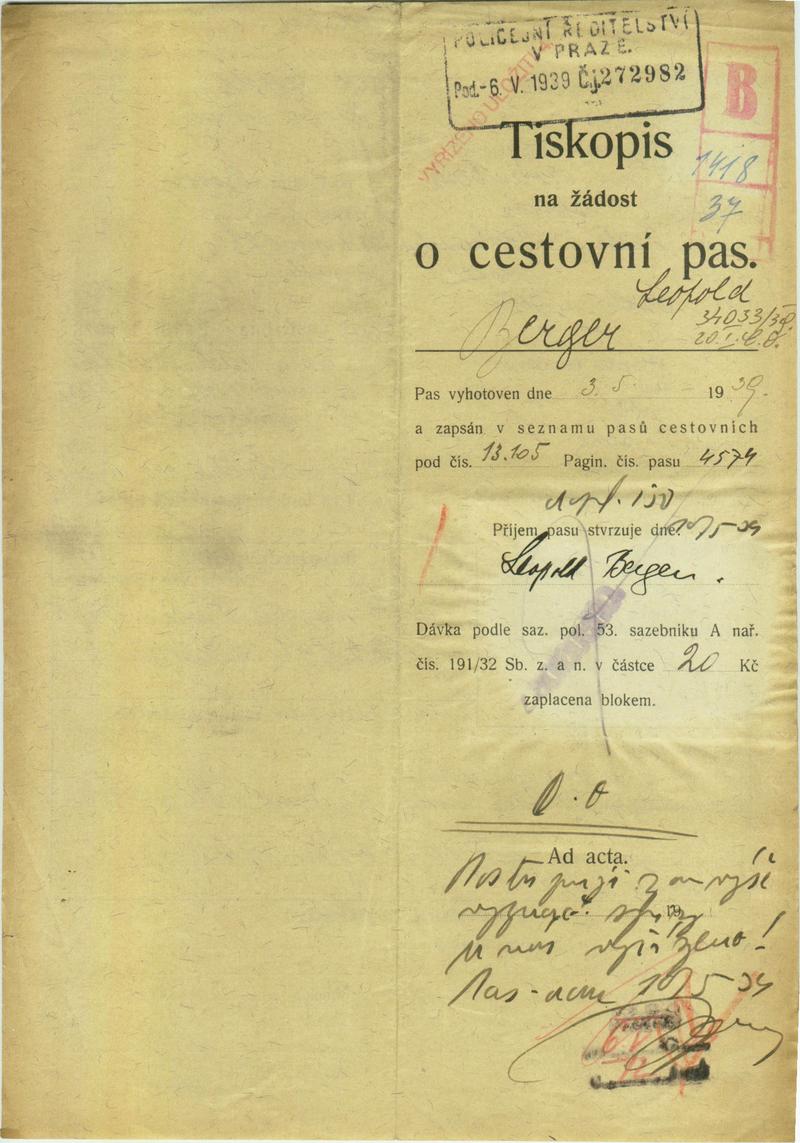 POLICEJNÍ ŘEDITELSTVÍ
V PRAZE.
Pod.-6. V. 1939 Čj.272982
B
1418
37
VYŘÍZENO ULOŽITI
Tiskopis
na žádost
o cestovní pas.
Leopold
Berger
34033/39
Pas vyhotoven dne 3. 5. 1939.
a zapsán v seznamu pasů cestovních
pod čís. 13.105 Pagin. čís. pasu 4574
Příjem pasu stvrzuje dne:
Leopold Berger.
Dávka podle saz. pol. 53. sazebníku A nař.
čís. 191/32 Sb. z. a n. v částce 20 Kč
zaplacena blokem.
Ad acta.
u nás vyřízeno!